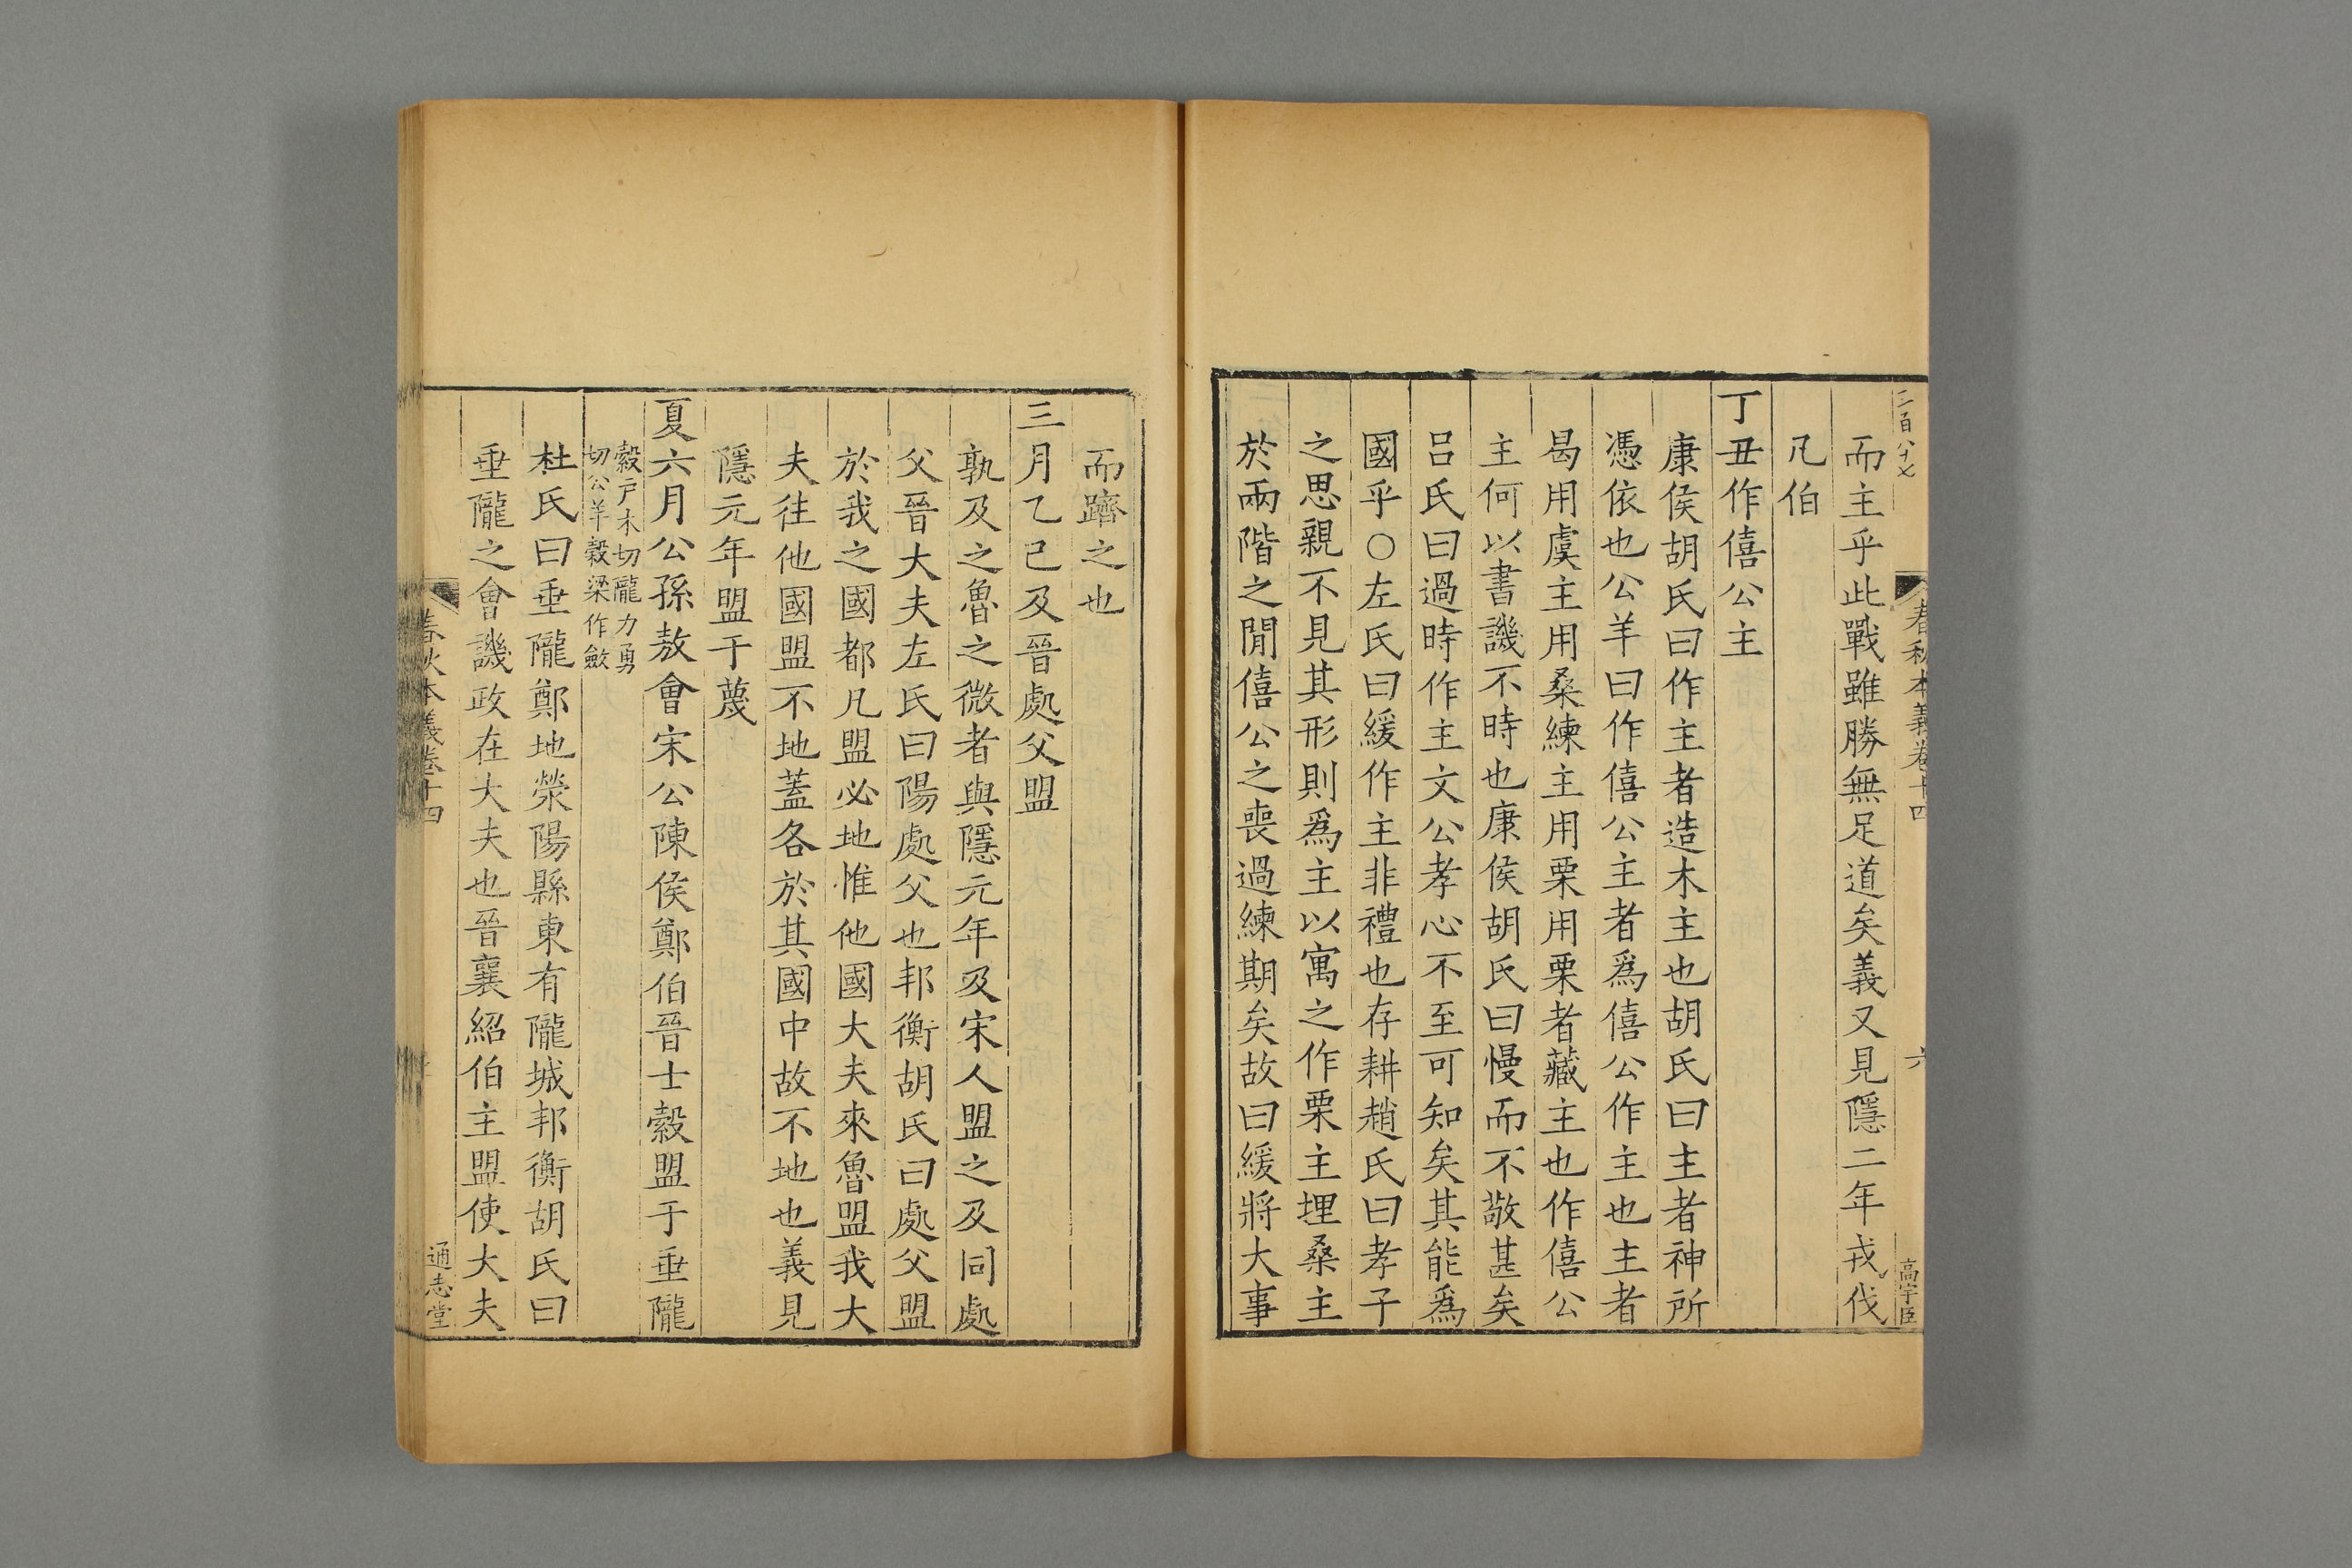 二百八十七
春秋本義卷十四
六
高宇臣
而主乎此戰雖勝無足道矣義又見隱二年戎伐
凡伯
丁丑作僖公主
康侯胡氏曰作主者造木主也胡氏曰主者神所
憑依也公羊曰作僖公主者爲僖公作主也主者
曷用虞主用桑練主用栗用栗者藏主也作僖公
主何以書譏不時也康侯胡氏曰慢而不敬甚矣
呂氏曰過時作主文公孝心不至可知矣其能爲
國乎○左氏曰緩作主非禮也存耕趙氏曰孝子
之思親不見其形則爲主以寓之作栗主埋桑主
於兩階之閒僖公之喪過練期矣故曰緩將大事
而躋之也
三月乙巳及晉處父盟
孰及之魯之微者與隱元年及宋人盟之及同處
父晉大夫左氏曰陽處父也邦衡胡氏曰處父盟
於我之國都凡盟必地惟他國大夫來魯盟我大
夫往他國盟不地蓋各於其國中故不地也義見
隱元年盟于蔑
夏六月公孫敖會宋公陳侯鄭伯晉士縠盟于垂隴
縠戸木切隴力勇
切公羊穀梁作歛
杜氏曰垂隴鄭地滎陽縣東有隴城邦衡胡氏曰
垂隴之會譏政在大夫也晉襄紹伯主盟使大夫
春秋本義卷十四
通志堂